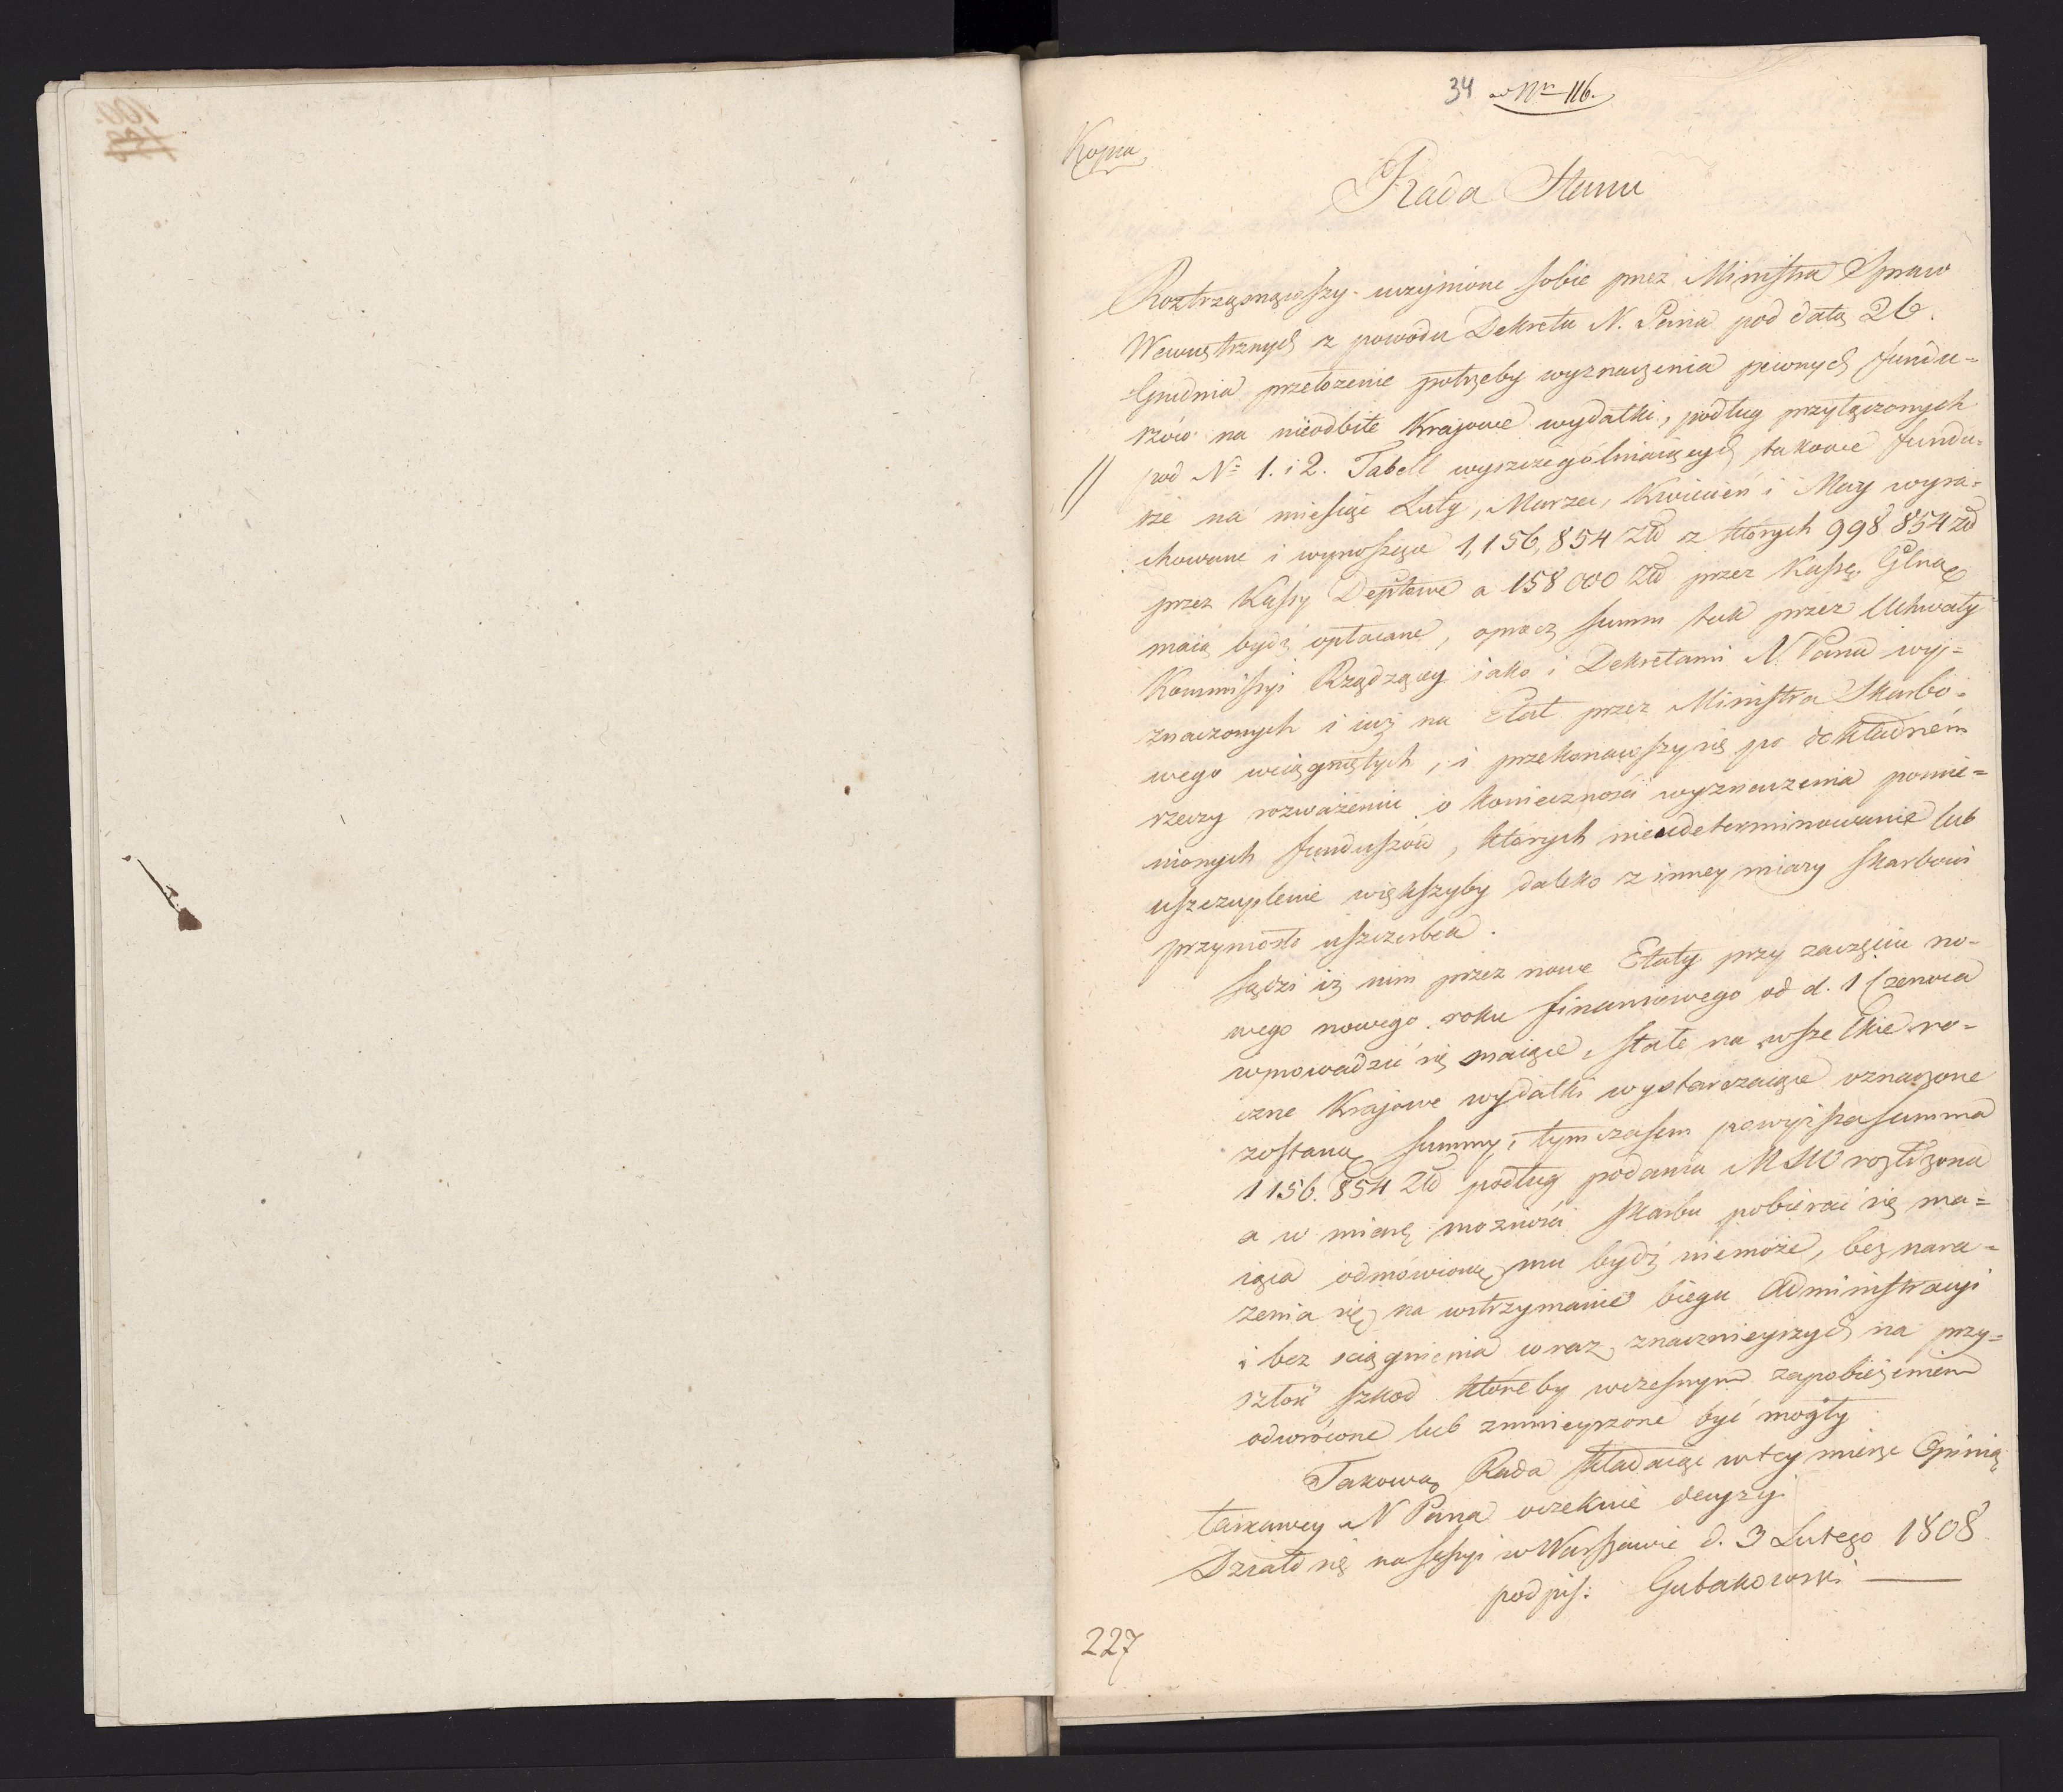 34 ad Nr 116.
Kopia
Rada Stanu
Roztrząsnąwszy uczynione sobie przez Ministra Spraw
Wewnętrznych z powodu Dekretu N. Pana pod datą 26.
Grudnia przełożenie potrzeby wyznaczenia pewnych fundu=
szów na nieodbite Krajowe wydatki, podług przyłączonych
pod No 1. i 2. Tabell wyszczególniaiących takowe fundu=
sze na miesiące Luty, Marzec, Kwiecień i May wyra=
chowane i wynoszące 1,156,854 Złł z których 998 854 Złł
przez Kassy Deptowe a 158 000 Złł przez Kassę Glną
maią bydź opłacane, oprócz summ tak przez Uchwały
Kommissyi Rządzącey iako i Dekretami N. Pana wy=
znaczonych i iuż na Etat przez Ministra Skarbo=
wego wciągniętych, i przekonawszy się po dokładném
rzeczy rozważeniu o konieczności wyznaczenia pomie=
nionych funduszów, których nieudeterminowanie lub
uszczuplenie większyby daleko z inney miary Skarbowi
przyniosło uszczerbek.
Sądzi iż nim przez nowe Etaty przy zaczęciu no=
wego nowego roku finansowego od d. 1 Czerwca
wprowadzić się maiące, stałe na wszelkie ro=
czne Krajowe wydatki wystarczaiące oznaczone
zostaną summy, tymczasem powyższa summa
1 156. 854 Złł podług podania MSW rozliczona
a w miarę możności Skarbu pobierać się ma=
iąca odmówioną mu bydź niemoże, bez nara=
żenia się na wstrzymanie biegu Administracyi
i bez ściągnienia wraz znacznieyszych na przy=
szłość szkod któreby wczesnym zapobieżeniem
odwrócone lub zmnieyszone być mogły
Takową Rada składaiąc w tey mierze Opinią
łaskawey N Pana oczekuie decyzyi.
Działo się na Sessyi w Warszawie d. 3 Lutego 1808
podpis: Gutakowski
227